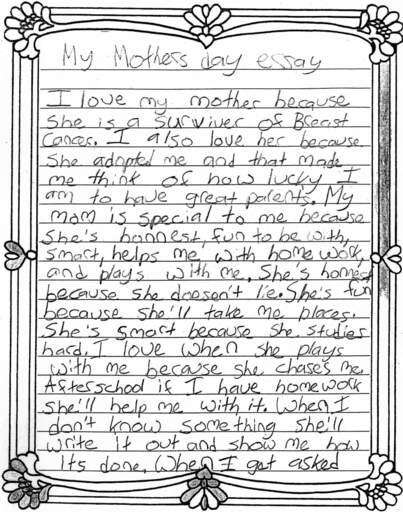 My Mothers day essay
I love my mother because
She is a Surviver of Breast
Cancer. I also love her because
She adopted me and that made
me think of how lucky I
am to have great parents. My
mom is special to me because
She's honnest, fun to be with,
smart, helps me with home work,
and plays with me. She's honnest
because she doesn't lie. She's fun
because she'll take me places.
She's smart because she studies
hard. I love when she plays
with me because she chases me.
Afterschool if I have homework
she'll help me with it. When I
don't know something she'll
write it out and show me how
its done. When I get asked